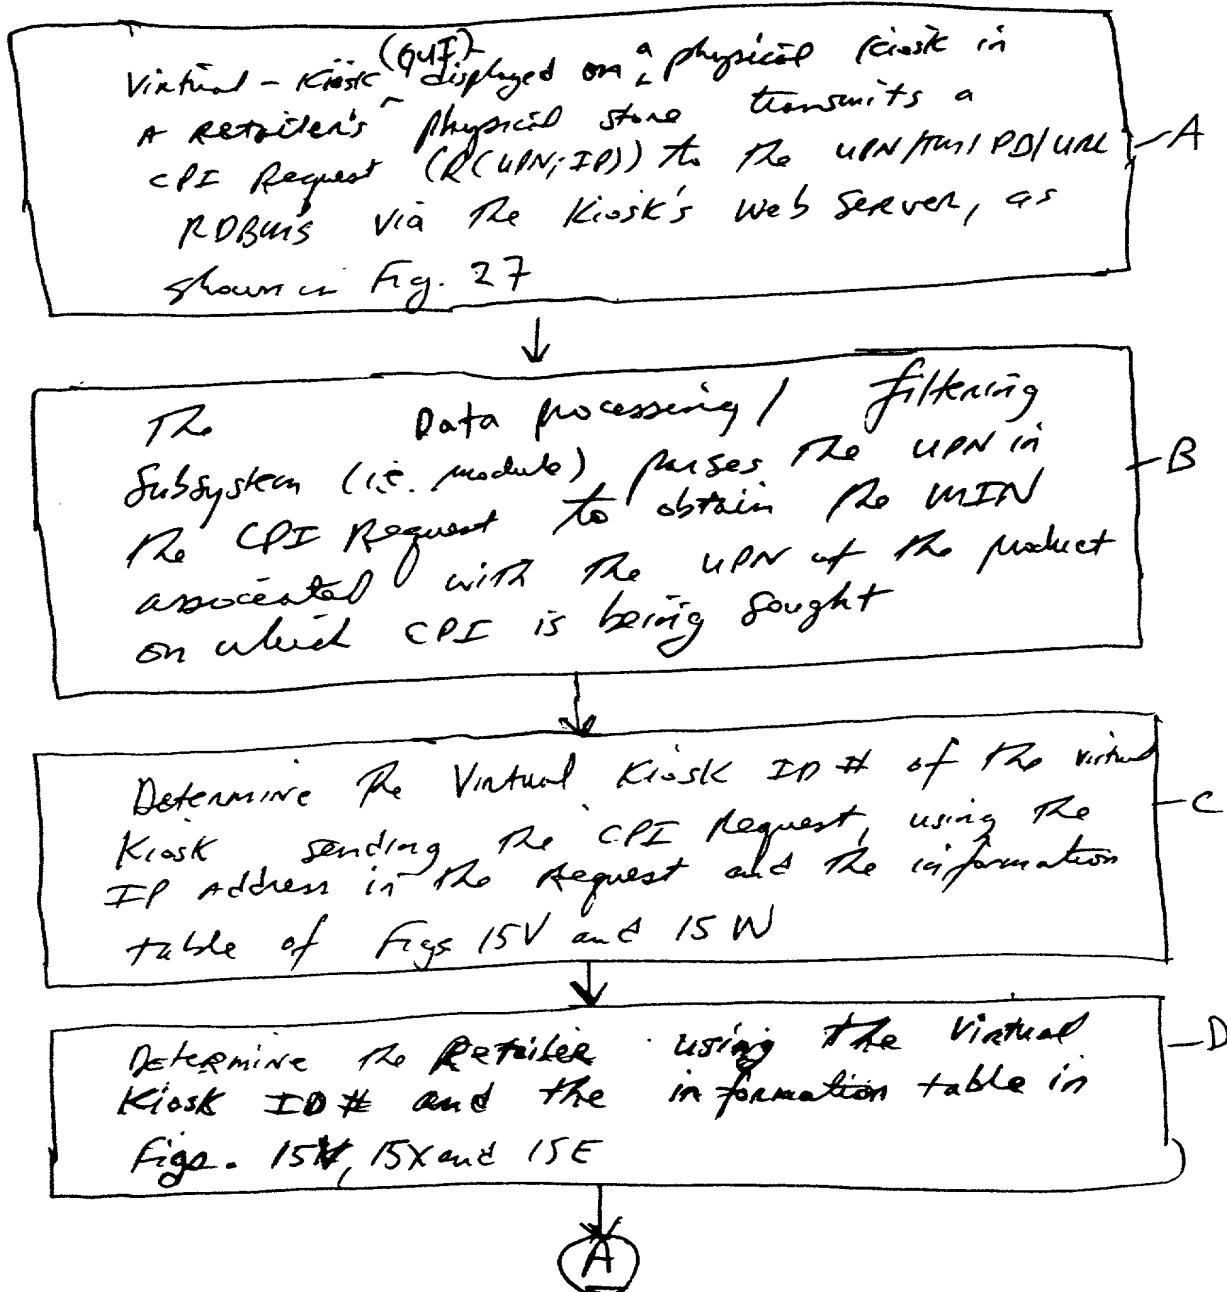 (GUI)
Virtual-Kiosk displayed on a physical Kiosk in
A Retailer's physical store transmits a
CPI Request (R(UPN; IP)) to the UPN/TM/PD/URL
RDBMS via the Kiosk's Web Server, as
shown in Fig. 27
A
The Data processing/ filtering
Subsystem (i.e. module) parses the UPN in
the CPI Request to obtain the MIN
associated with the UPN of the product
on which CPI is being sought
B
Determine the Virtual Kiosk ID # of the virtual
Kiosk sending the CPI Request, using the
IP Address in the Request and the information
table of Figs 15V and 15W
C
Determine the Retailer using the Virtual
Kiosk ID # and the information table in
Figs. , 15X and 15E
D
A